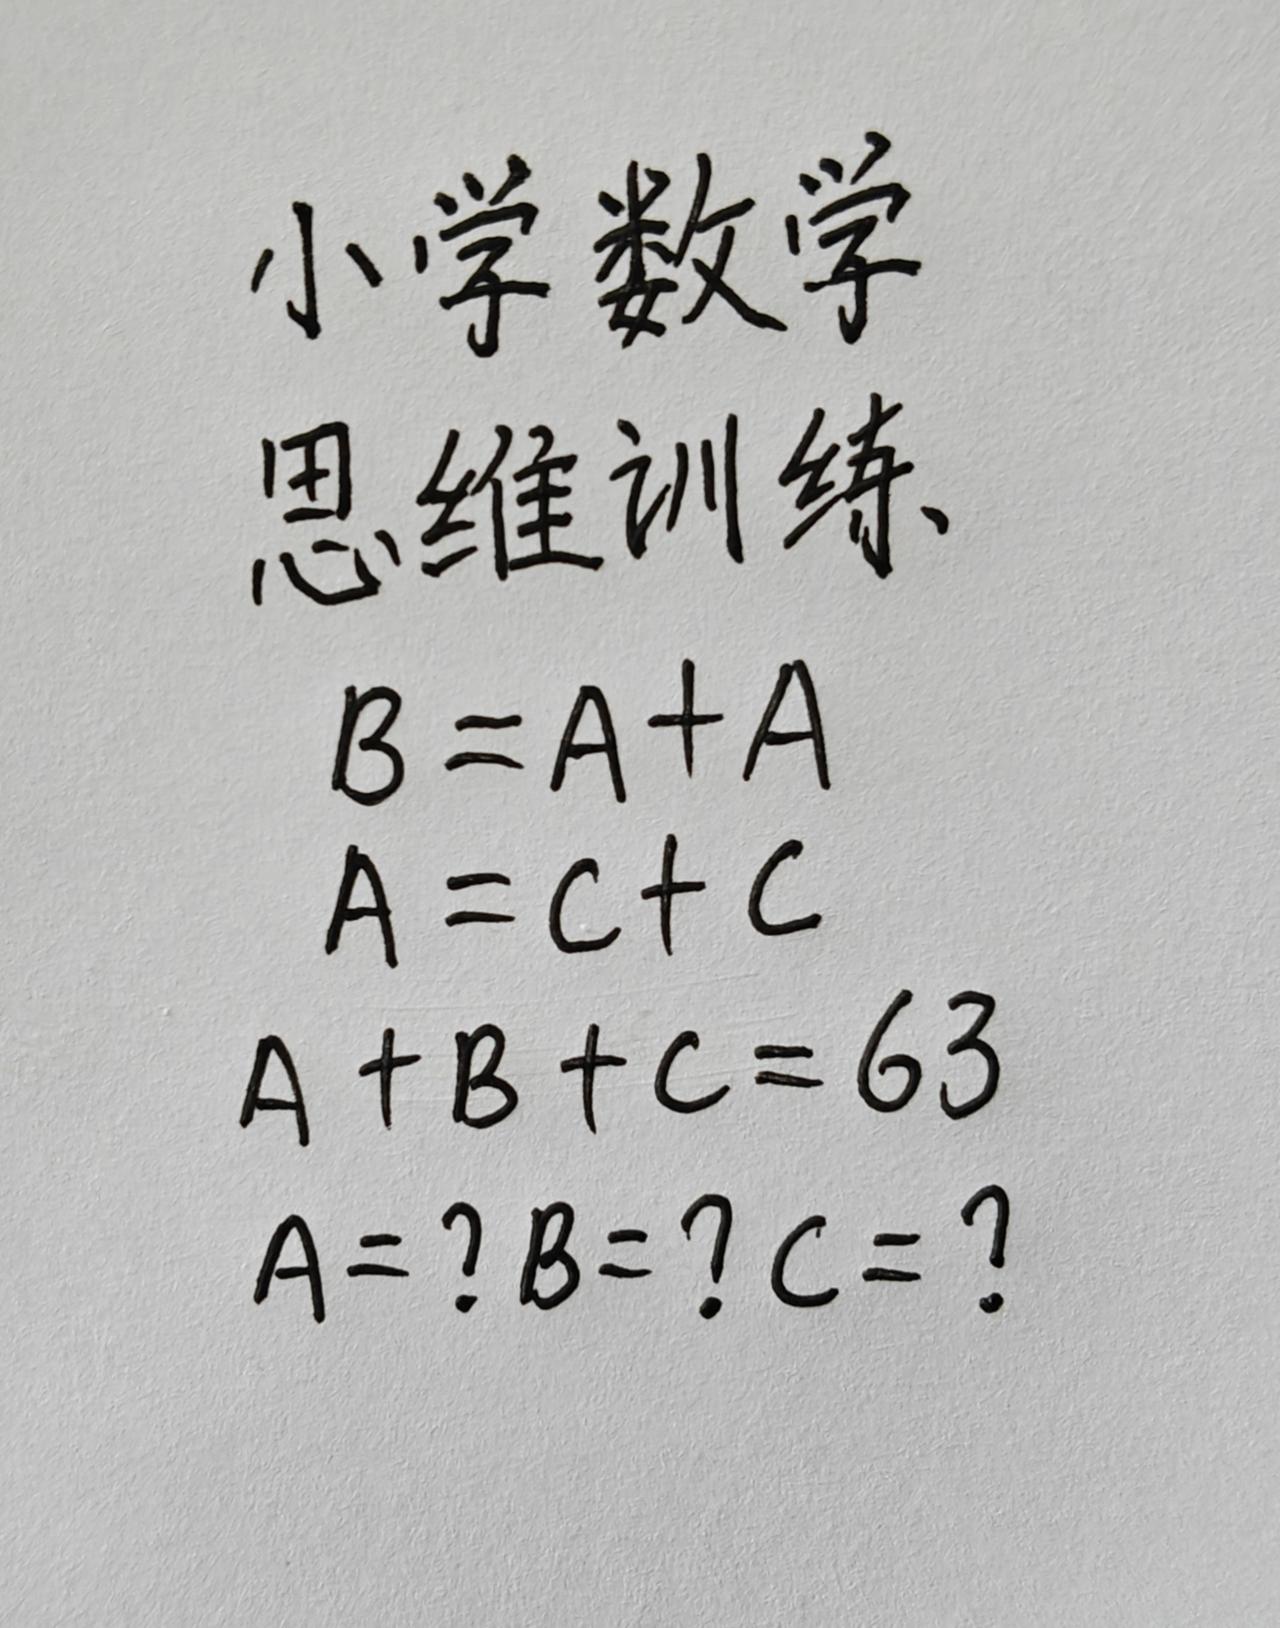 小学数学
思维训练
B=A+A
A=C+C
A+B+C=63
A=?B=?C=?